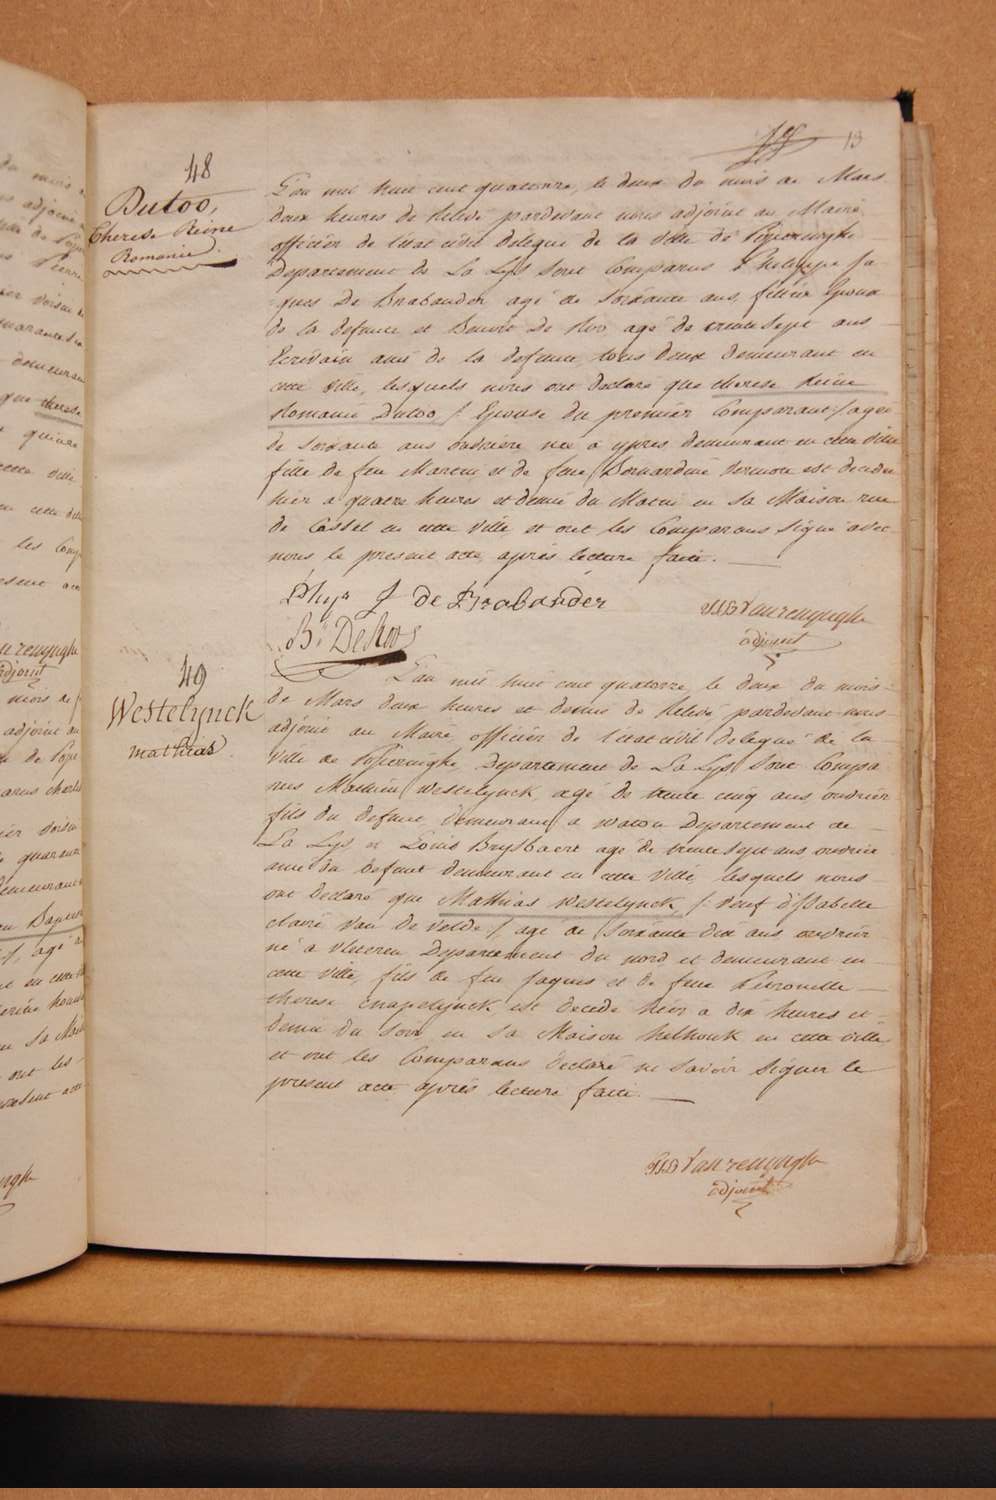 13
48
Dutoo,
Therese Reine
Romanie
L'an mil huit cent quatorze, le deux du mois de Mars
deux heures de Relevé pardevant nous adjoint au Maire
officier de l'état civil délegué de la ville de Poperinghe
Departement de La Lys sont Comparus Philippe Ja-
ques De Brabander agé de soixante ans, filtier Epoux
de la defunte et Benoit De Roo agé de trente sept ans
Ecrivain ami de la defunte, tous deux demeurant en
cette ville, lesquels nous ont declaré que therese Reine
Romanie Dutoo /: Epouse du premier Comparant :/ agée
de soixante ans ouvrière née a ypres demeurant en cette ville
fille de feu Martin et de feue Bernardine vermote est decedée
hier a quatre heures et demie du Matin en sa Maison rue
de Cassel en cette ville, et ont les Comparans signé avec
nous le present acte, après lecture faite.
Phpe J de Brabander
B. DeRoo
Vanrenynghe
adjoint
49
Westelynck
mathias
L'an mil huit cent quatorze, le deux du mois
de Mars deux heures et demie de Relevé pardevant nous
adjoint au Maire officier de l'état civil delegué de la
ville de Poperinghe, Departement de La Lys sont Compa-
rus Mathieu westelynck, agé de trente cinq ans, ouvrier
fils du defunt, demeurant a watou Departement de
La Lys et Louis Brysbaert agé de trente sept ans ouvrier
ami du defunt demeurant en cette ville, lesquels nous
ont declaré que Mathias westelynck /: veuf d'Isabelle
claire van de velde :/ agé de soixante dix ans ouvrier
né a vleteren Departement du nord et demeurant en
cette ville, fils de feu Jaques et de feue Pétronelle
therese cnapelynck est decedé hier a dix heures et
demie du soir en sa Maison helhouk en cette ville
et ont les Comparans declaré ne savoir signer le
present acte après lecture faite.
Vanrenynghe
adjoint